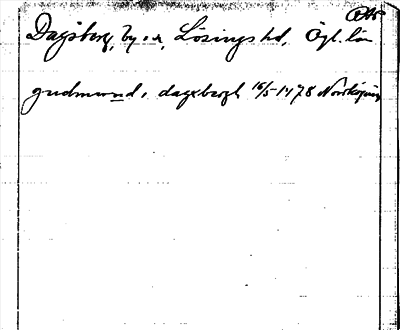 Dagsberg, by o. a, Lösings hd, Ögl. län
gudmund i dagxbergh 16/5-1478 Norrköping